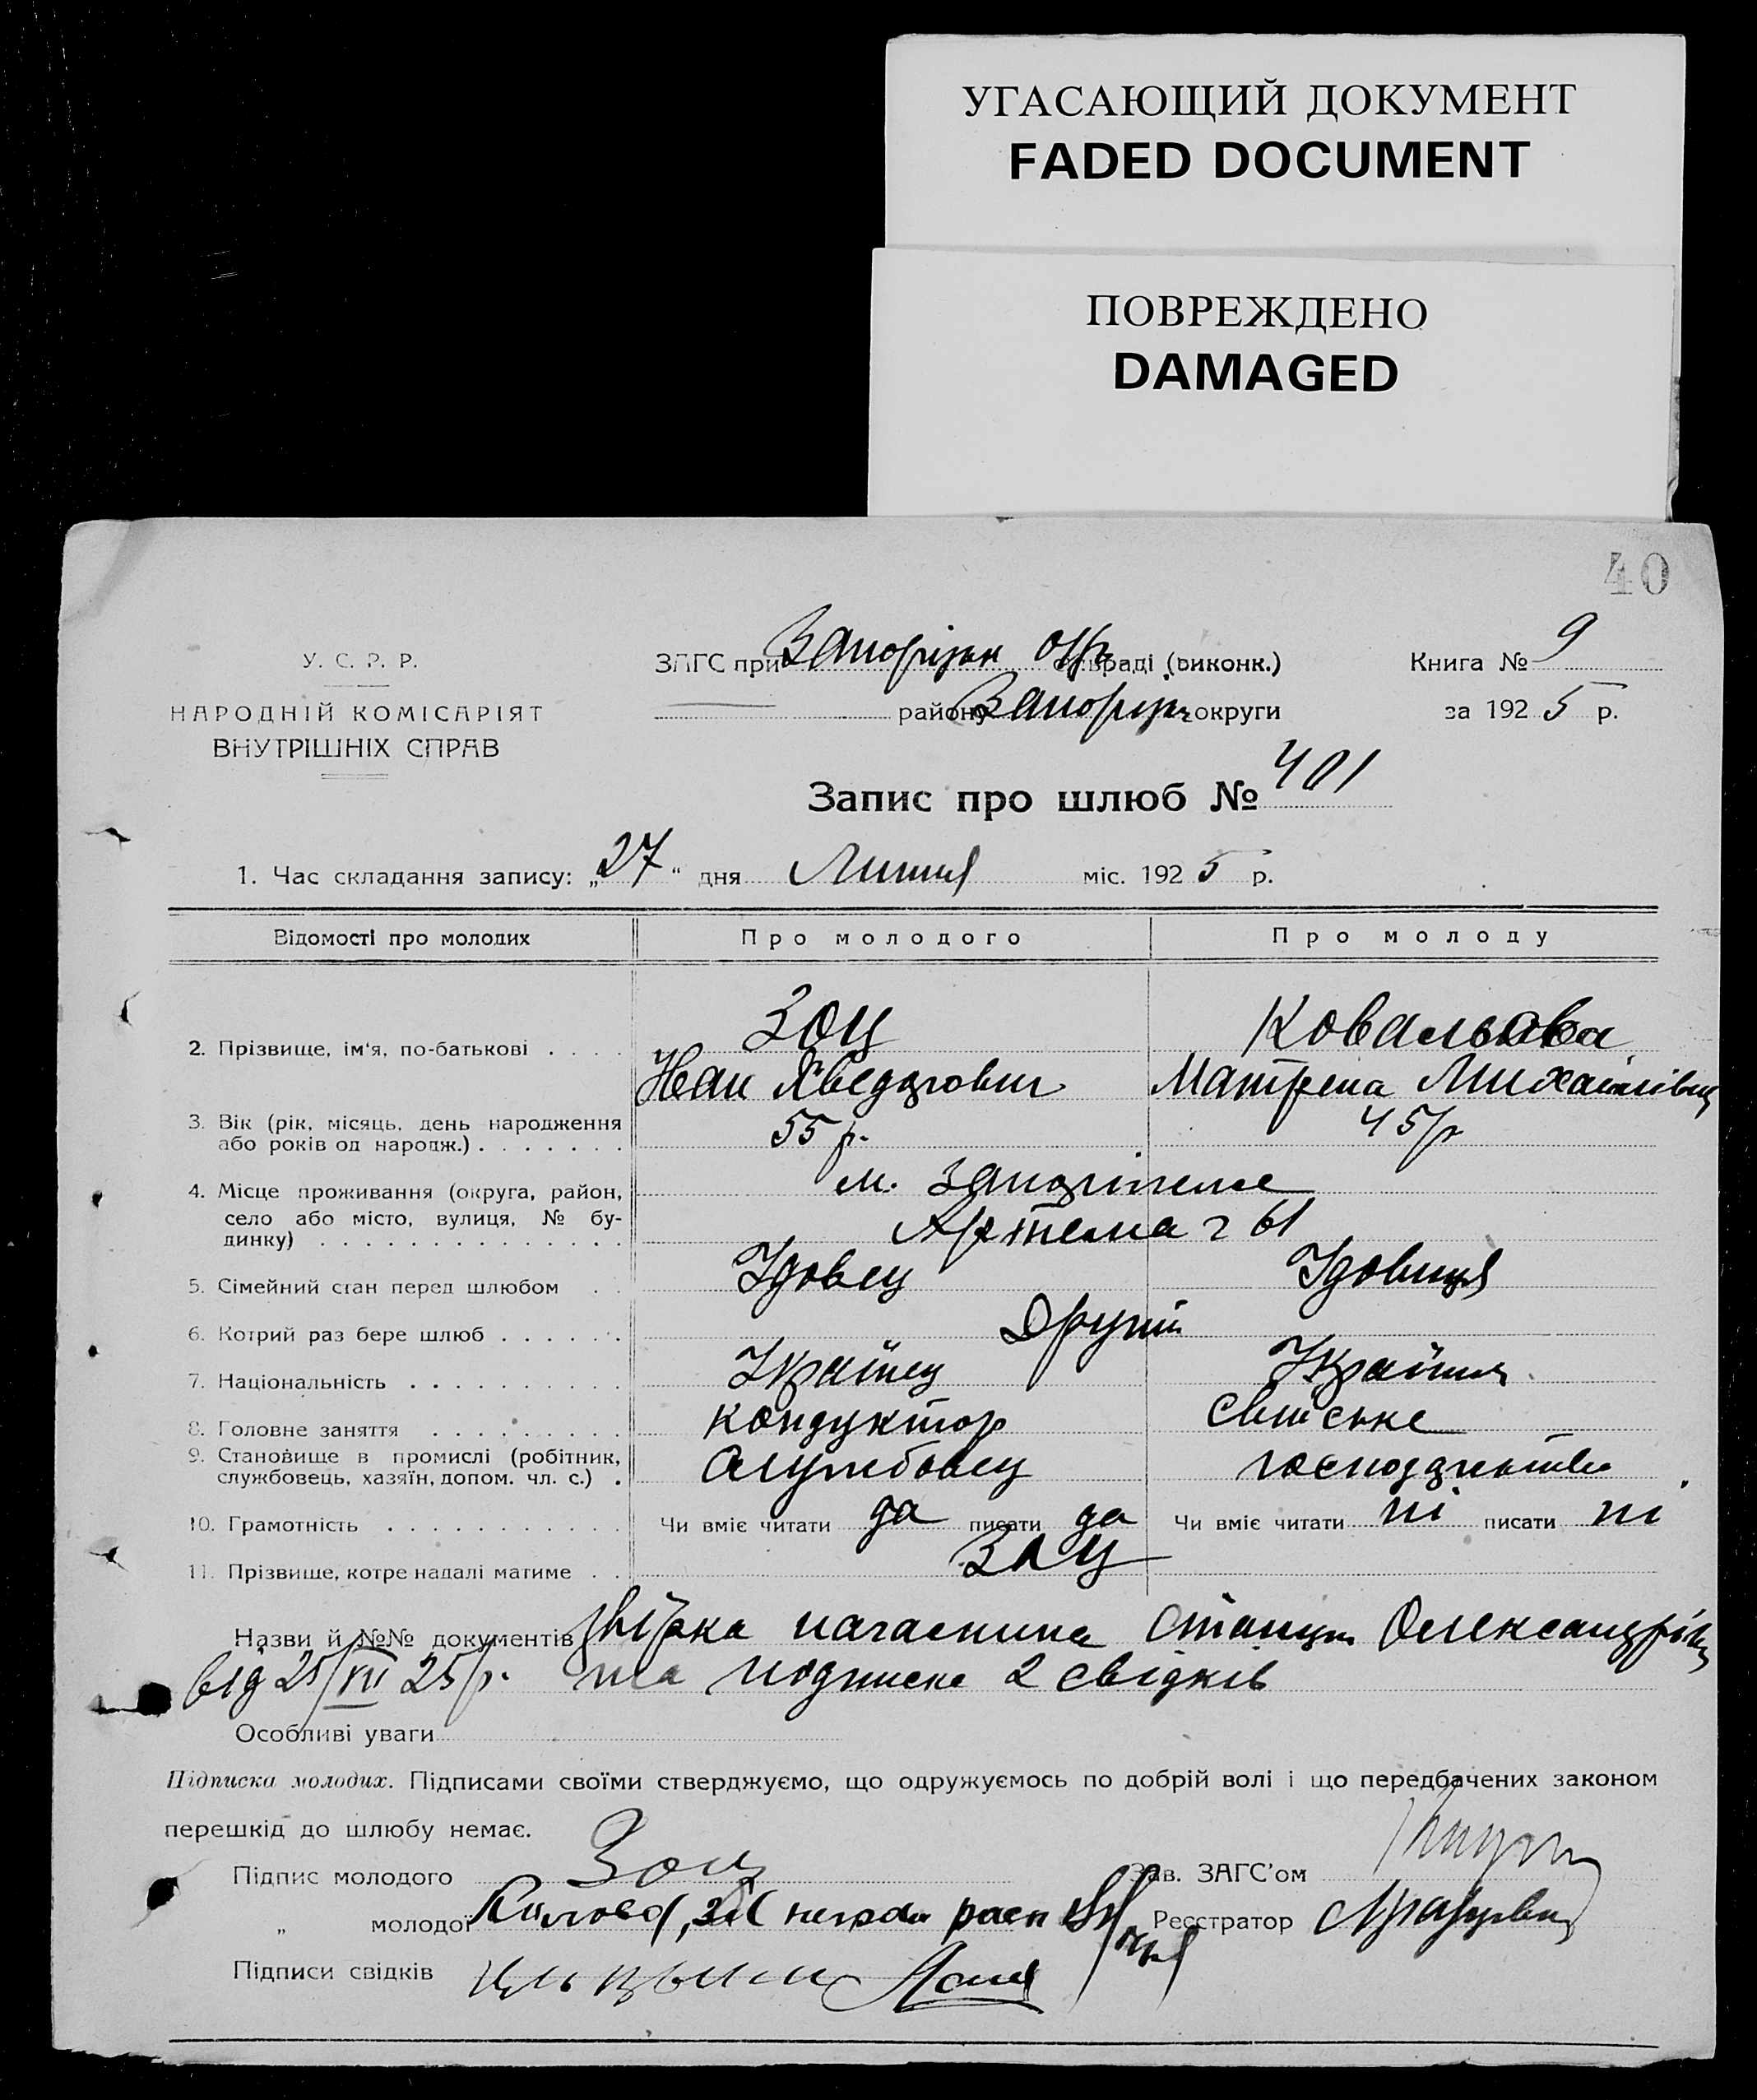 УГАСАЮЩИЙ ДОКУМЕНТ
FADED DOCUMENT
ПОВРЕЖДЕНО
DAMAGED
40
У. С. Р. Р.
НАРОДНІЙ КОМІСАРІЯТ
ВНУТРІШНІХ СПРАВ
ЗАГС при Запорізьк Окр раді (виконк.)
району Запоріз округи
Книга № 9
за 1925 р.
Запис про шлюб № 401
1. Час складання запису: „27“ дня Липня міс. 1925 р.
Відомості про молодих Про молодого Про молоду
2. Прізвище, ім'я, по-батькові . . . . Зоц Ковальова
Иван Матрена Михайлівна
3. Вік (рік, місяць, день народження
або років од народж.) . . . . . . . 55 р. 45 р
4. Місце проживання (округа, район,
село або місто, вулиця, № бу-
динку) . . . . . . . . . . . . . .
м. Запоріжже
Артема 61
5. Сімейний стан перед шлюбом . . Удовец Удовиця
6. Котрий раз бере шлюб . . . . . . Другий
7. Національність . . . . . . . . . . Українец Українка
8. Головне заняття . . . . . . . . . кондуктор свійське
9. Становище в промислі (робітник,
службовець, хазяїн, допом. чл. с.) . Службовец господарство
10. Грамотність . . . . . . . . . . . Чи вміє читати да писати да Чи вміє читати ні писати ні
11. Прізвище, котре надалі матиме . . Зоц
Назви й №№ документів начальника Станции Олександрівськ
від 25/VII 25 р. та подписка 2 свідків
Особливі уваги
Підписка молодих. Підписами своїми стверджуємо, що одружуємось по добрій волі і що передбачених законом
перешкід до шлюбу немає.
Підпис молодого Зоц
Зав. ЗАГС'ом
„ молодої
Реєстратор
Підписи свідків